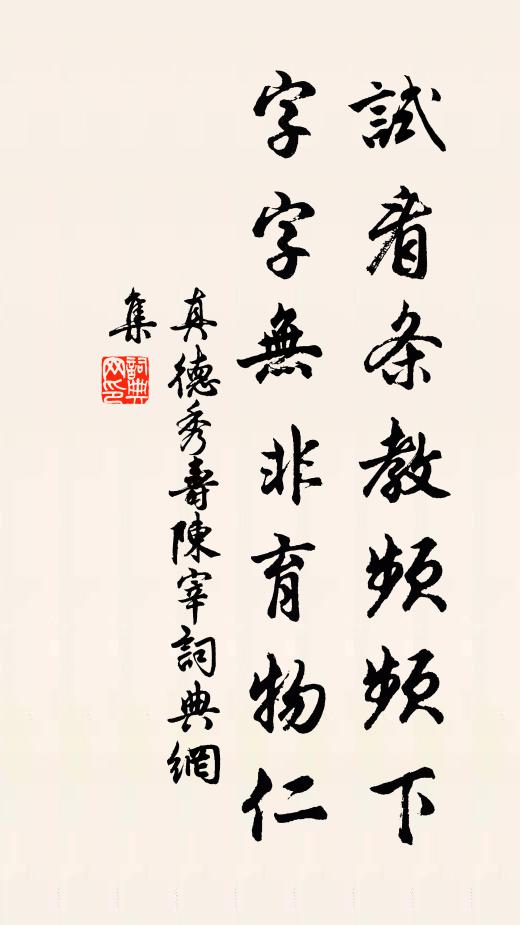 試看条教頻頻下
字字無非育物仁
真德秀壽陳宰詞典網
集
詞典網印